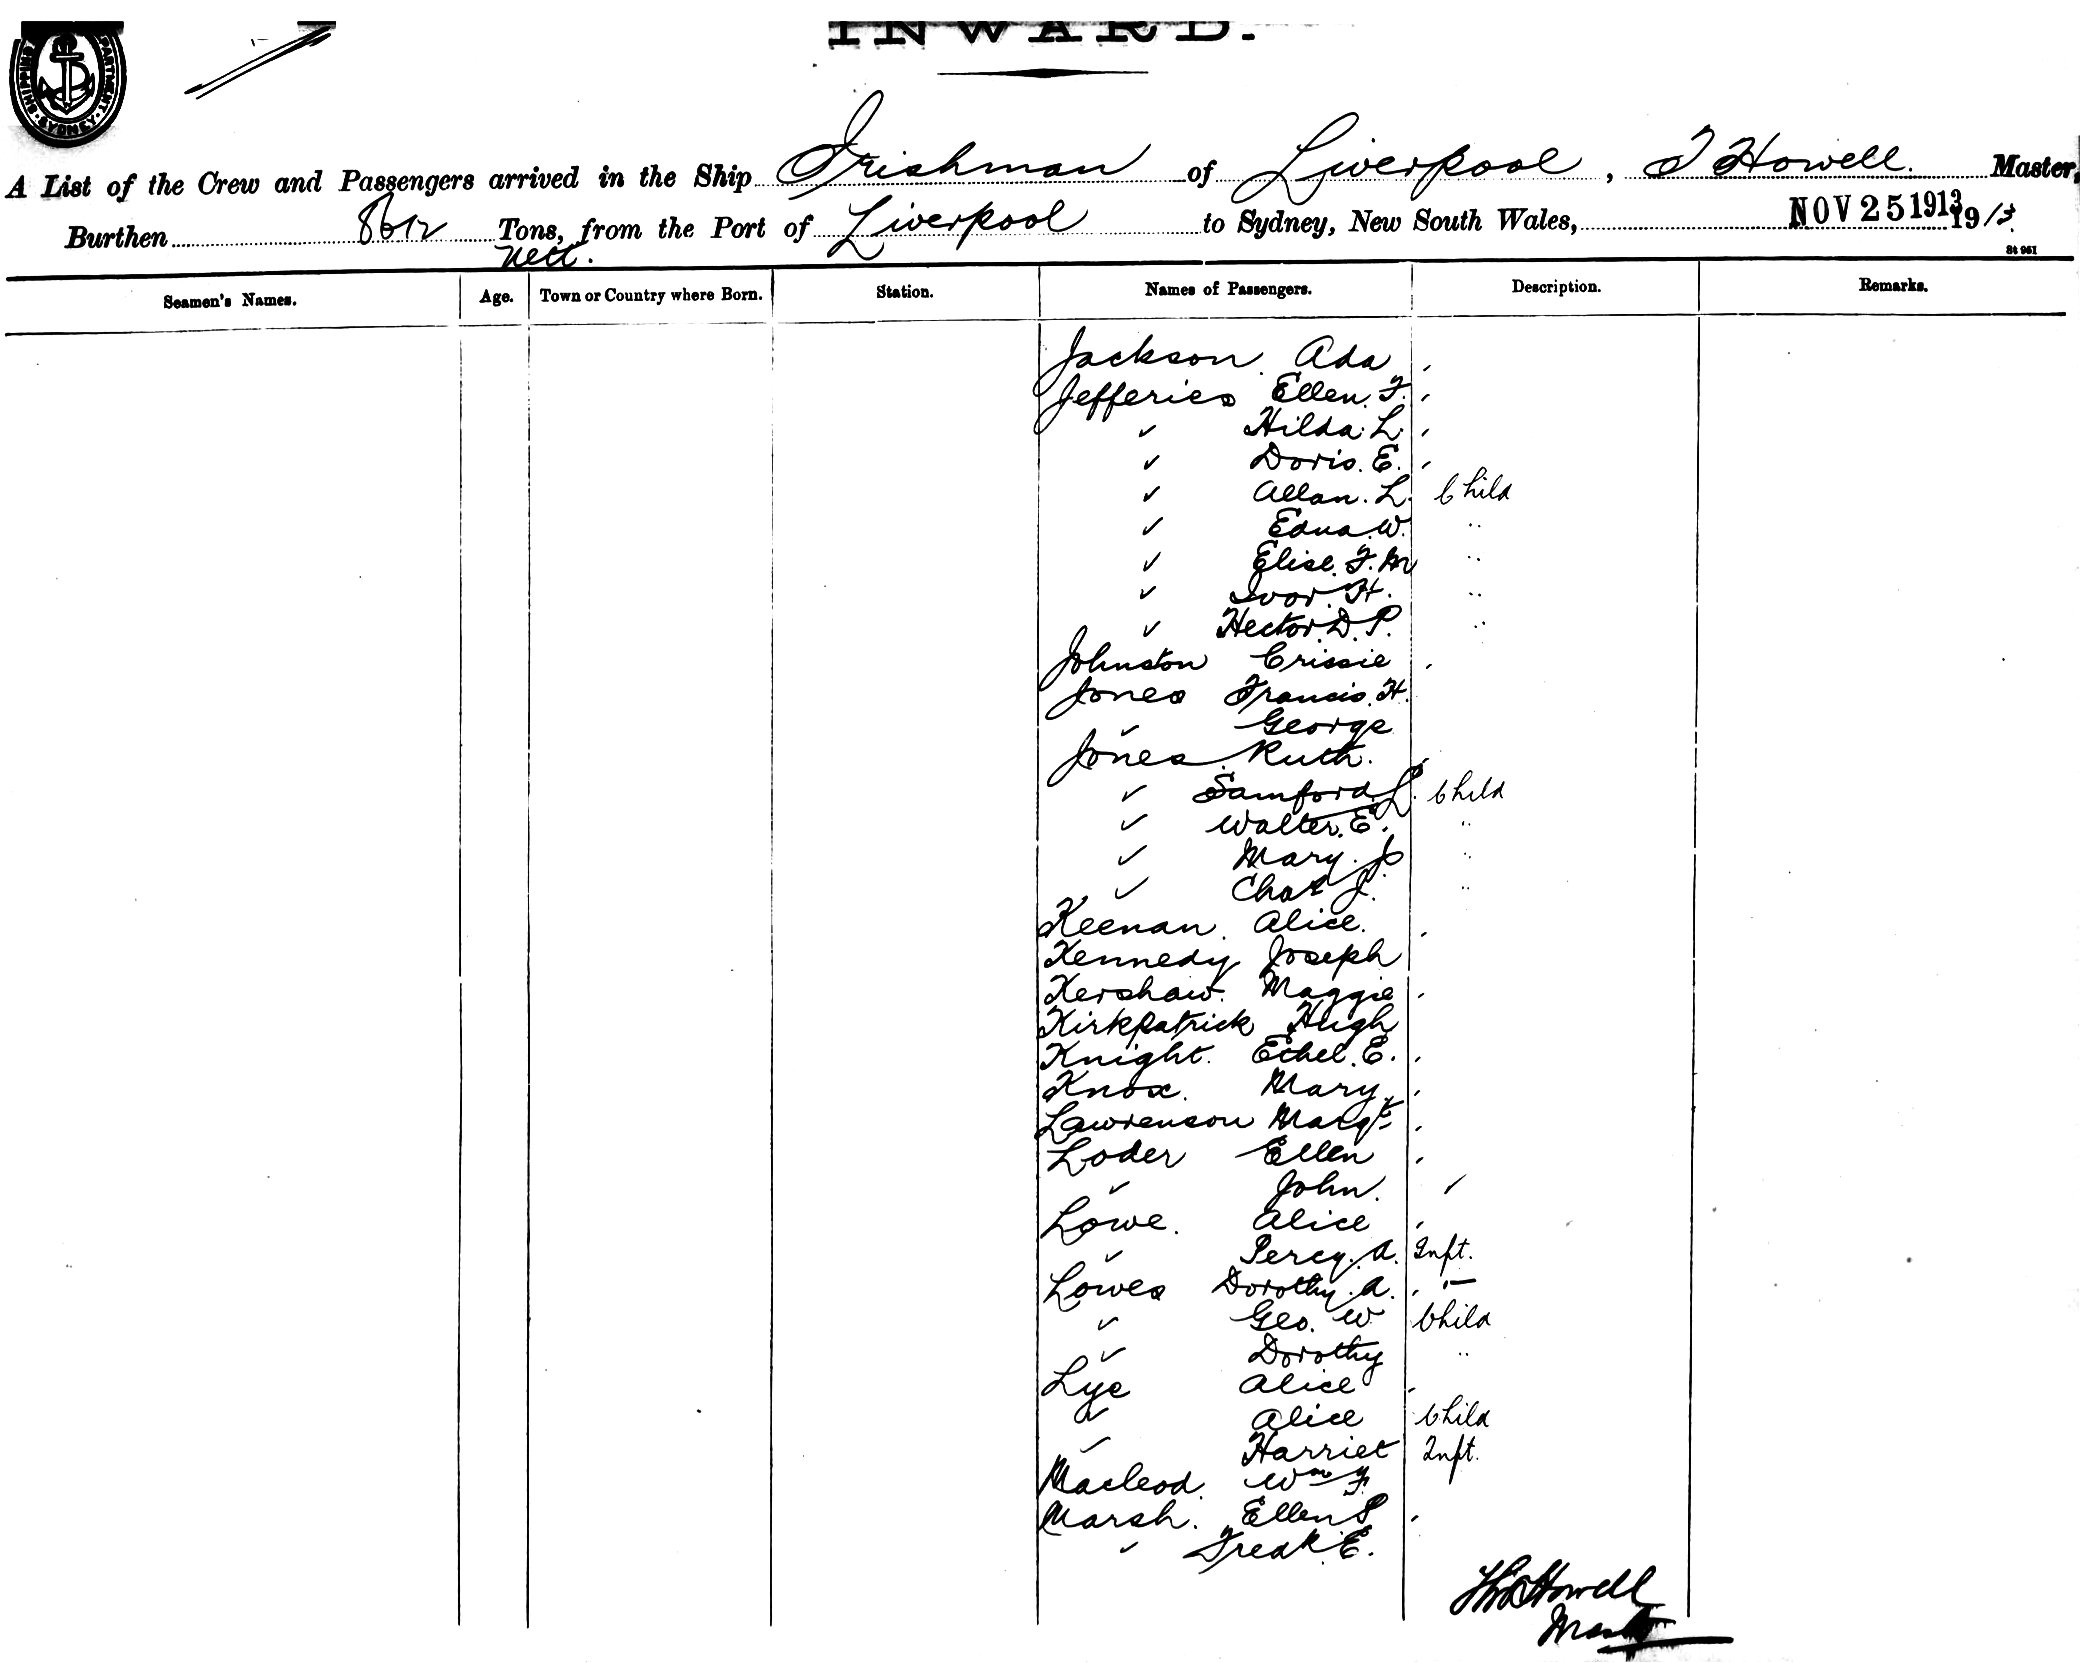 INWARD.
SHIPPING DEPARTMENT SYDNEY
A List of the Crew and Passengers arrived in the Ship Irishman of Liverpool, T Howell. Master,
Burthen 8612 Tons, from the Port of Liverpool to Sydney, New South Wales, NOV 25 1913 1913
Nett.
St 951
Seamen's Names. Age. Town or Country where Born. Station. Names of Passengers. Description. Remarks.
Jackson. Ada
Jefferies Ellen. F.
" Hilda. L.
" Doris. E.
" Allan. L. Child
" Edna. W. "
" Elise. F. M "
" Ivor. H. "
" Hector. D. P. "
Johnston Crissie
Jones Francis. H.
" George
Jones. Ruth.
" Samford. L. Child
" Walter. E. "
" Mary. J. "
" Chas J. "
Keenan. Alice.
Kennedy Joseph
Kershaw. Maggie
Kirkpatrick Hugh
Knight. Ethel. E.
Knox. Mary
Lawrenson Margt
Loder Ellen
" John.
Lowe. Alice
" Percy. A. Inft.
Lowes Dorothy. A.
" Geo. W Child
" Dorothy "
Lye Alice
" Alice Child
" Harriet Inft.
Macleod. Wm F.
Marsh. Ellen P.
" Fredk. E.
Thos Howell
Master